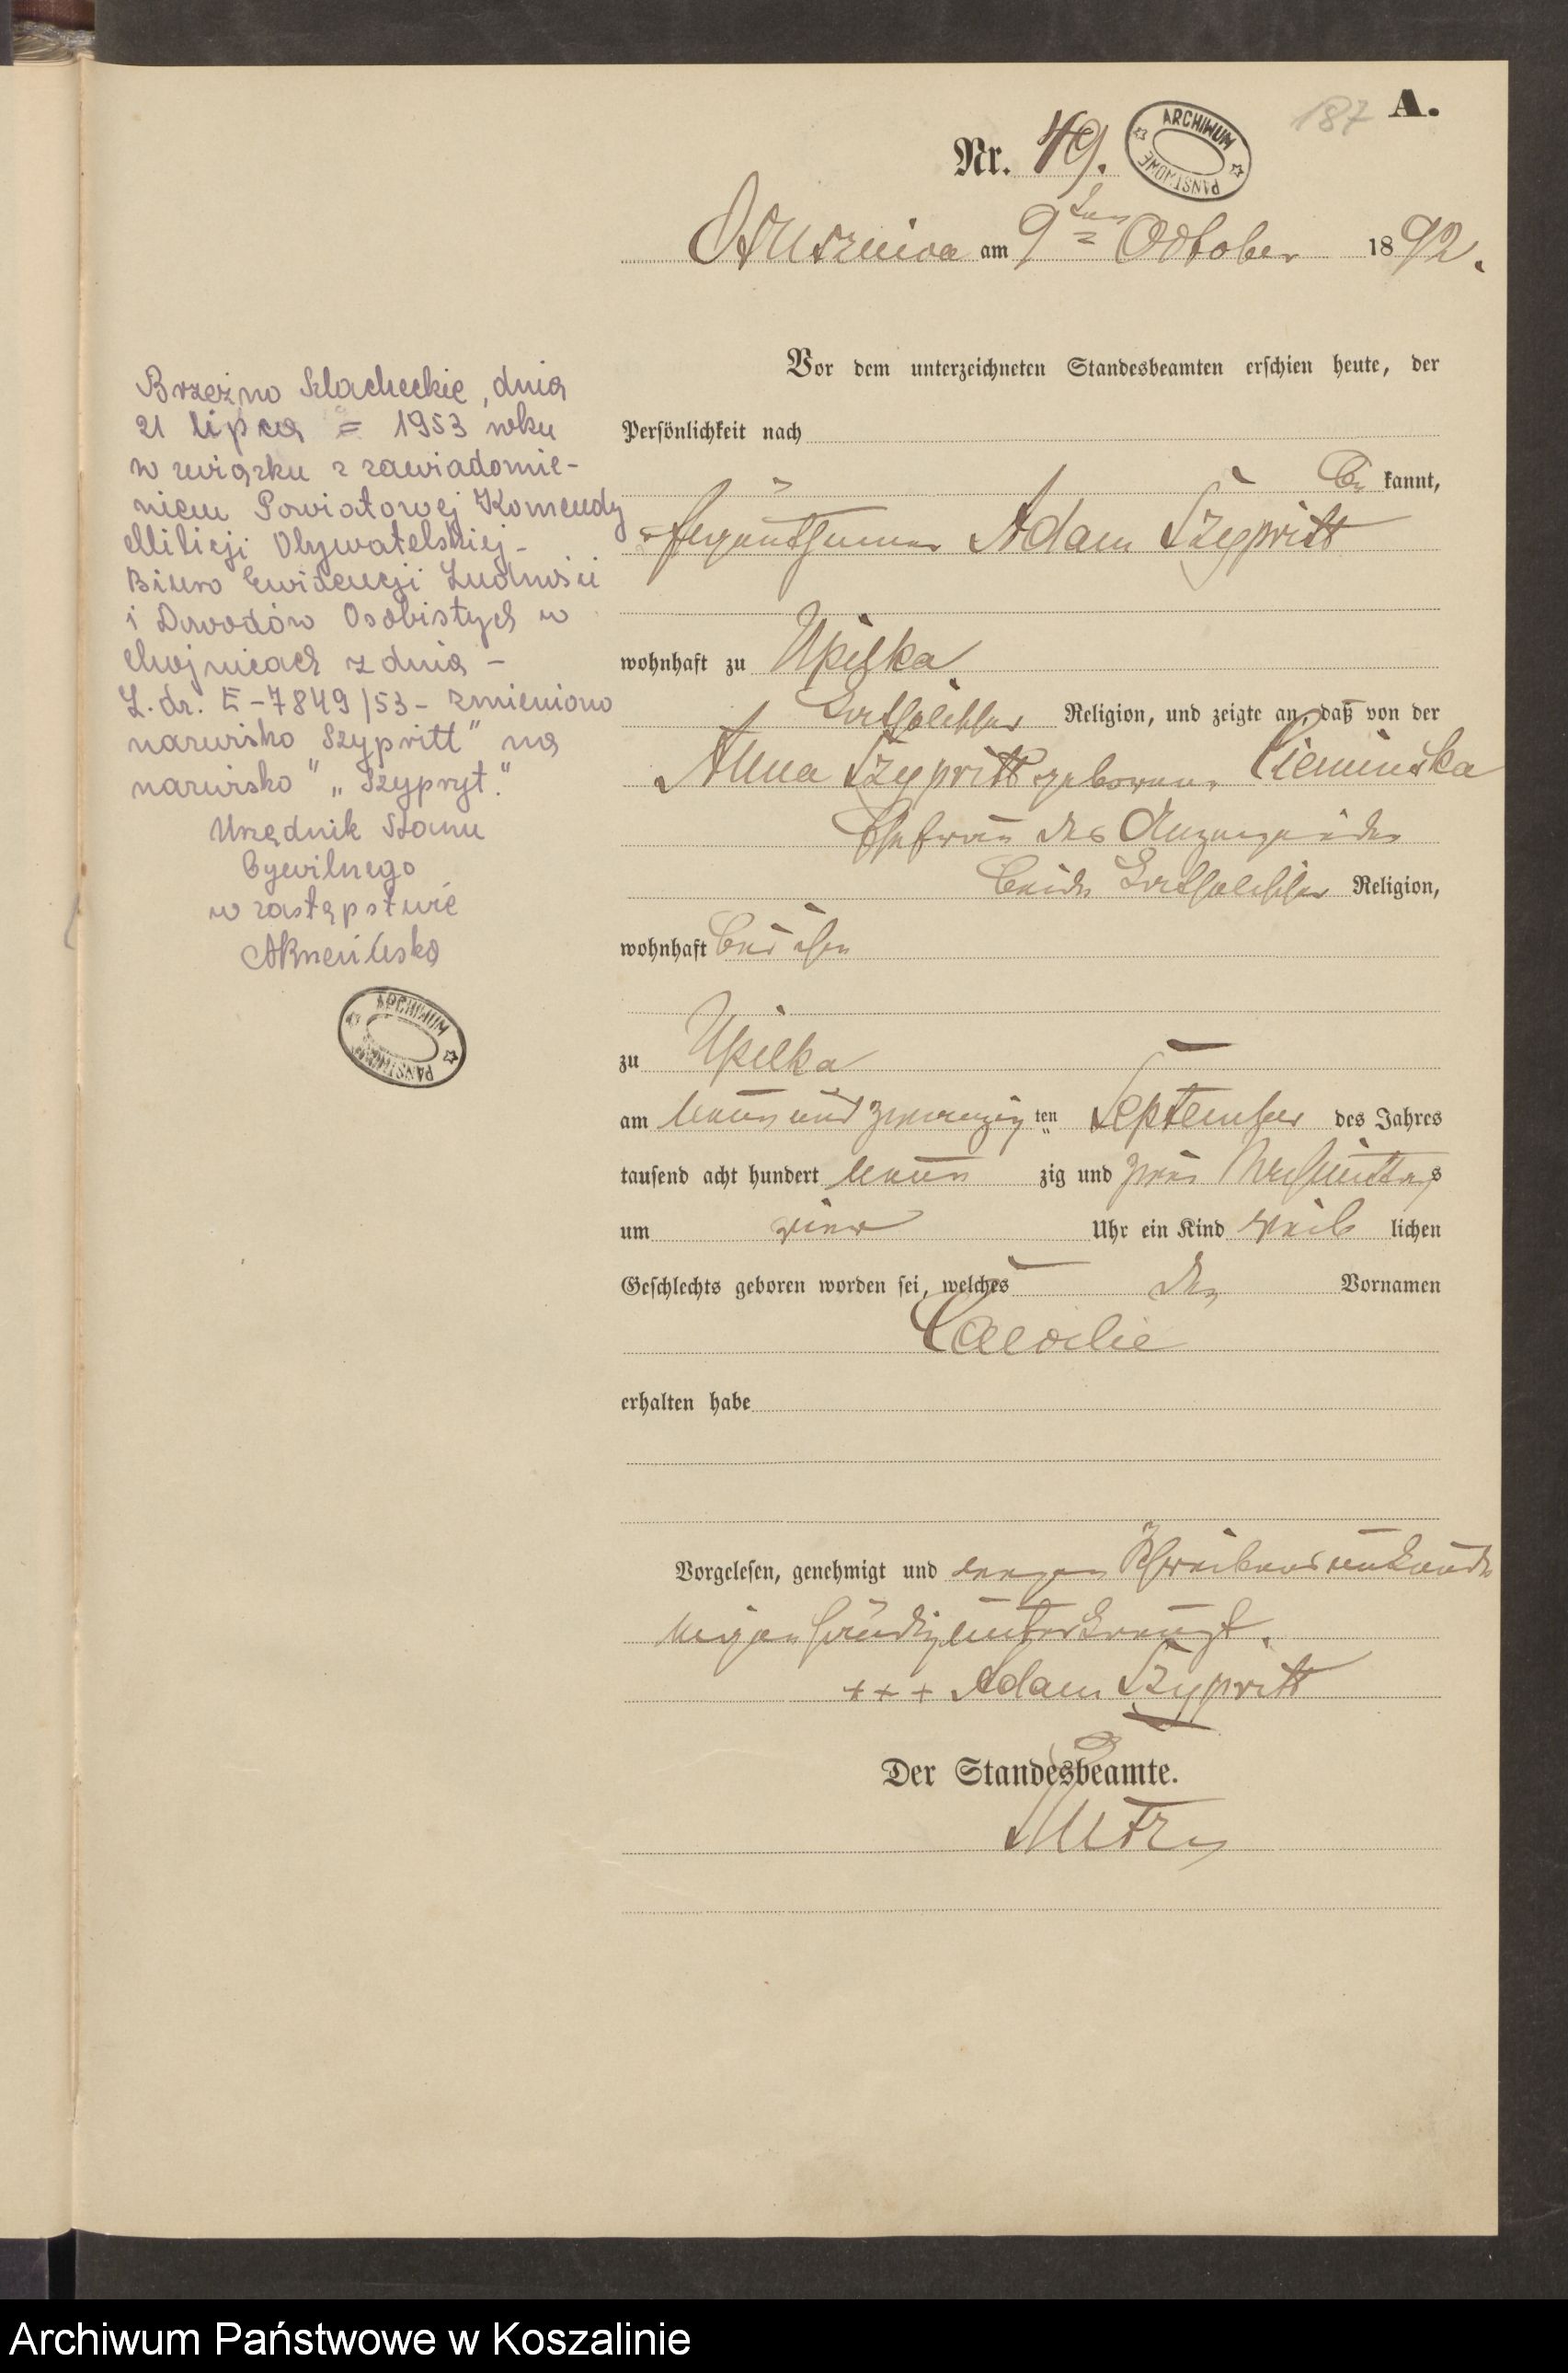 187 A.
Nr. 49.
ARCHIWUM PAŃSTWOWE
am 9ten October 1892.
Vor dem unterzeichneten Standesbeamten erschien heute, der
Persönlichkeit nach
be kannt,
Adam Szypritt
wohnhaft zu Upilka
katholischer Religion, und zeigte an, daß von der
Anna Szypritt geborene Cieminska
Ehefrau des Anzeigenden
beide katholischer Religion,
wohnhaft bei ihm
zu Upilka
am neun und zwanzig ten September des Jahres
tausend acht hundert neun zig und zwei Nachmittags
um vier Uhr ein Kind weib lichen
Geschlechts geboren worden sei, welches den Vornamen
Caecilie
erhalten habe
Vorgelesen, genehmigt und wegen Schreibensunkunde
unterkreuzt.
+++ Adam Szypritt
Der Standesbeamte.
Brzeźno Szlacheckie, dnia
21 lipca = 1953 roku
w związku z zawiadomie-
niem Powiatowej Komendy
Milicji Obywatelskiej -
Biuro Ewidencji Ludności
i Dowodów Osobistych w
Chojnicach z dnia -
L. dr. E-7849/53 - zmieniono
nazwisko "Szypritt" na
nazwisko " „Szypryt."
Urzędnik Stanu
Cywilnego
w zastępstwie
ARCHIWUM PAŃSTWOWE
Archiwum Państwowe w Koszalinie